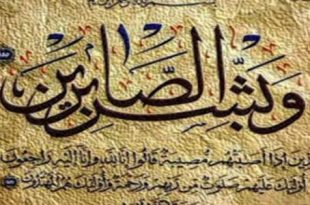 وَبَشِّرِ الصَّابِرِينَ
الذين إذا أصابتهم مصيبة قالوا إنا لله وإنا إليه راجعون
أولئك عليهم صلوات من ربهم ورحمة وأولئك هم المهتدون